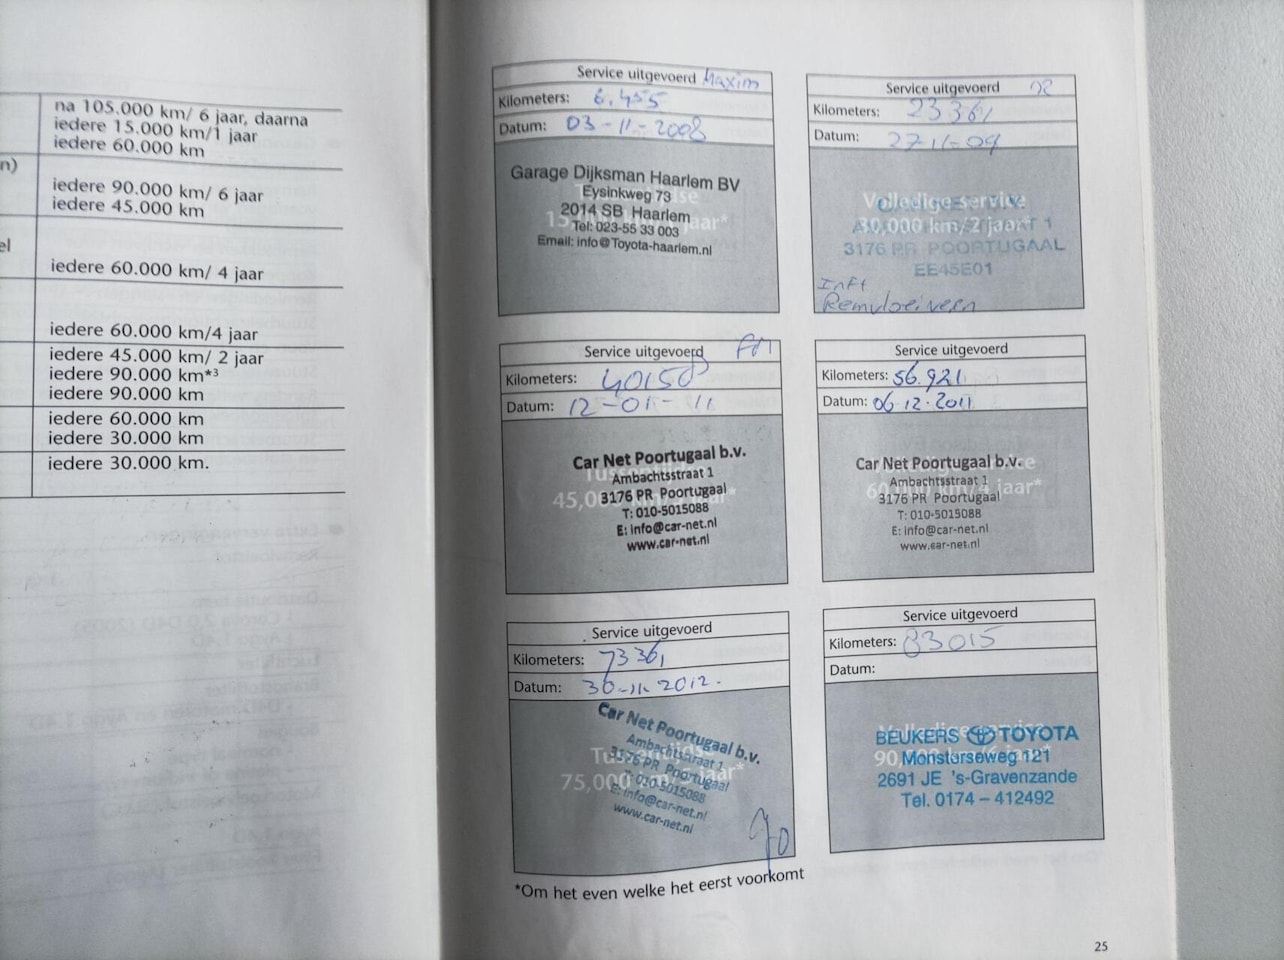 na 105.000 km/ 6 jaar, daarna
iedere 15.000 km/1 jaar
iedere 60.000 km
n)
iedere 90.000 km/ 6 jaar
iedere 45.000 km
el
iedere 60.000 km/ 4 jaar
iedere 60.000 km/4 jaar
iedere 45.000 km/ 2 jaar
iedere 90.000 km*3
iedere 90.000 km
iedere 60.000 km
iedere 30.000 km
iedere 30.000 km.
Service uitgevoerd Maxim
Kilometers: 6.455
Datum: 03-11-2008
Garage Dijksman Haarlem BV
Eysinkweg 73
2014 SB Haarlem
Tel: 023-55 33 003
Email: info@Toyota-haarlem.nl
Service uitgevoerd
Kilometers: 23361
Datum: 27-11-09
Volledige service
30,000 km/2 jaar*
3176 PR POORTUGAAL
EE45E01
Remvloeistof
Service uitgevoerd
Kilometers: 40158
Datum: 12-01-11
Tussentijdse
45,000 km/3 jaar*
Car Net Poortugaal b.v.
Ambachtsstraat 1
3176 PR Poortugaal
T: 010-5015088
E: info@car-net.nl
www.car-net.nl
Service uitgevoerd
Kilometers: 56.921
Datum: 06.12.2011
Volledige service
60,000 km/4 jaar*
Car Net Poortugaal b.v.
Ambachtsstraat 1
3176 PR Poortugaal
T: 010-5015088
E: info@car-net.nl
www.car-net.nl
Service uitgevoerd
Kilometers: 73361
Datum: 30-11-2012.
Tussentijdse
75,000 km/5 jaar*
Car Net Poortugaal b.v.
Ambachtsstraat 1
3176 PR Poortugaal
T: 010-5015088
E: info@car-net.nl
www.car-net.nl
Service uitgevoerd
Kilometers: 83015
Datum:
Volledige service
90,000 km/6 jaar*
BEUKERS TOYOTA
Monsterseweg 121
2691 JE 's-Gravenzande
Tel. 0174 – 412492
*Om het even welke het eerst voorkomt
25